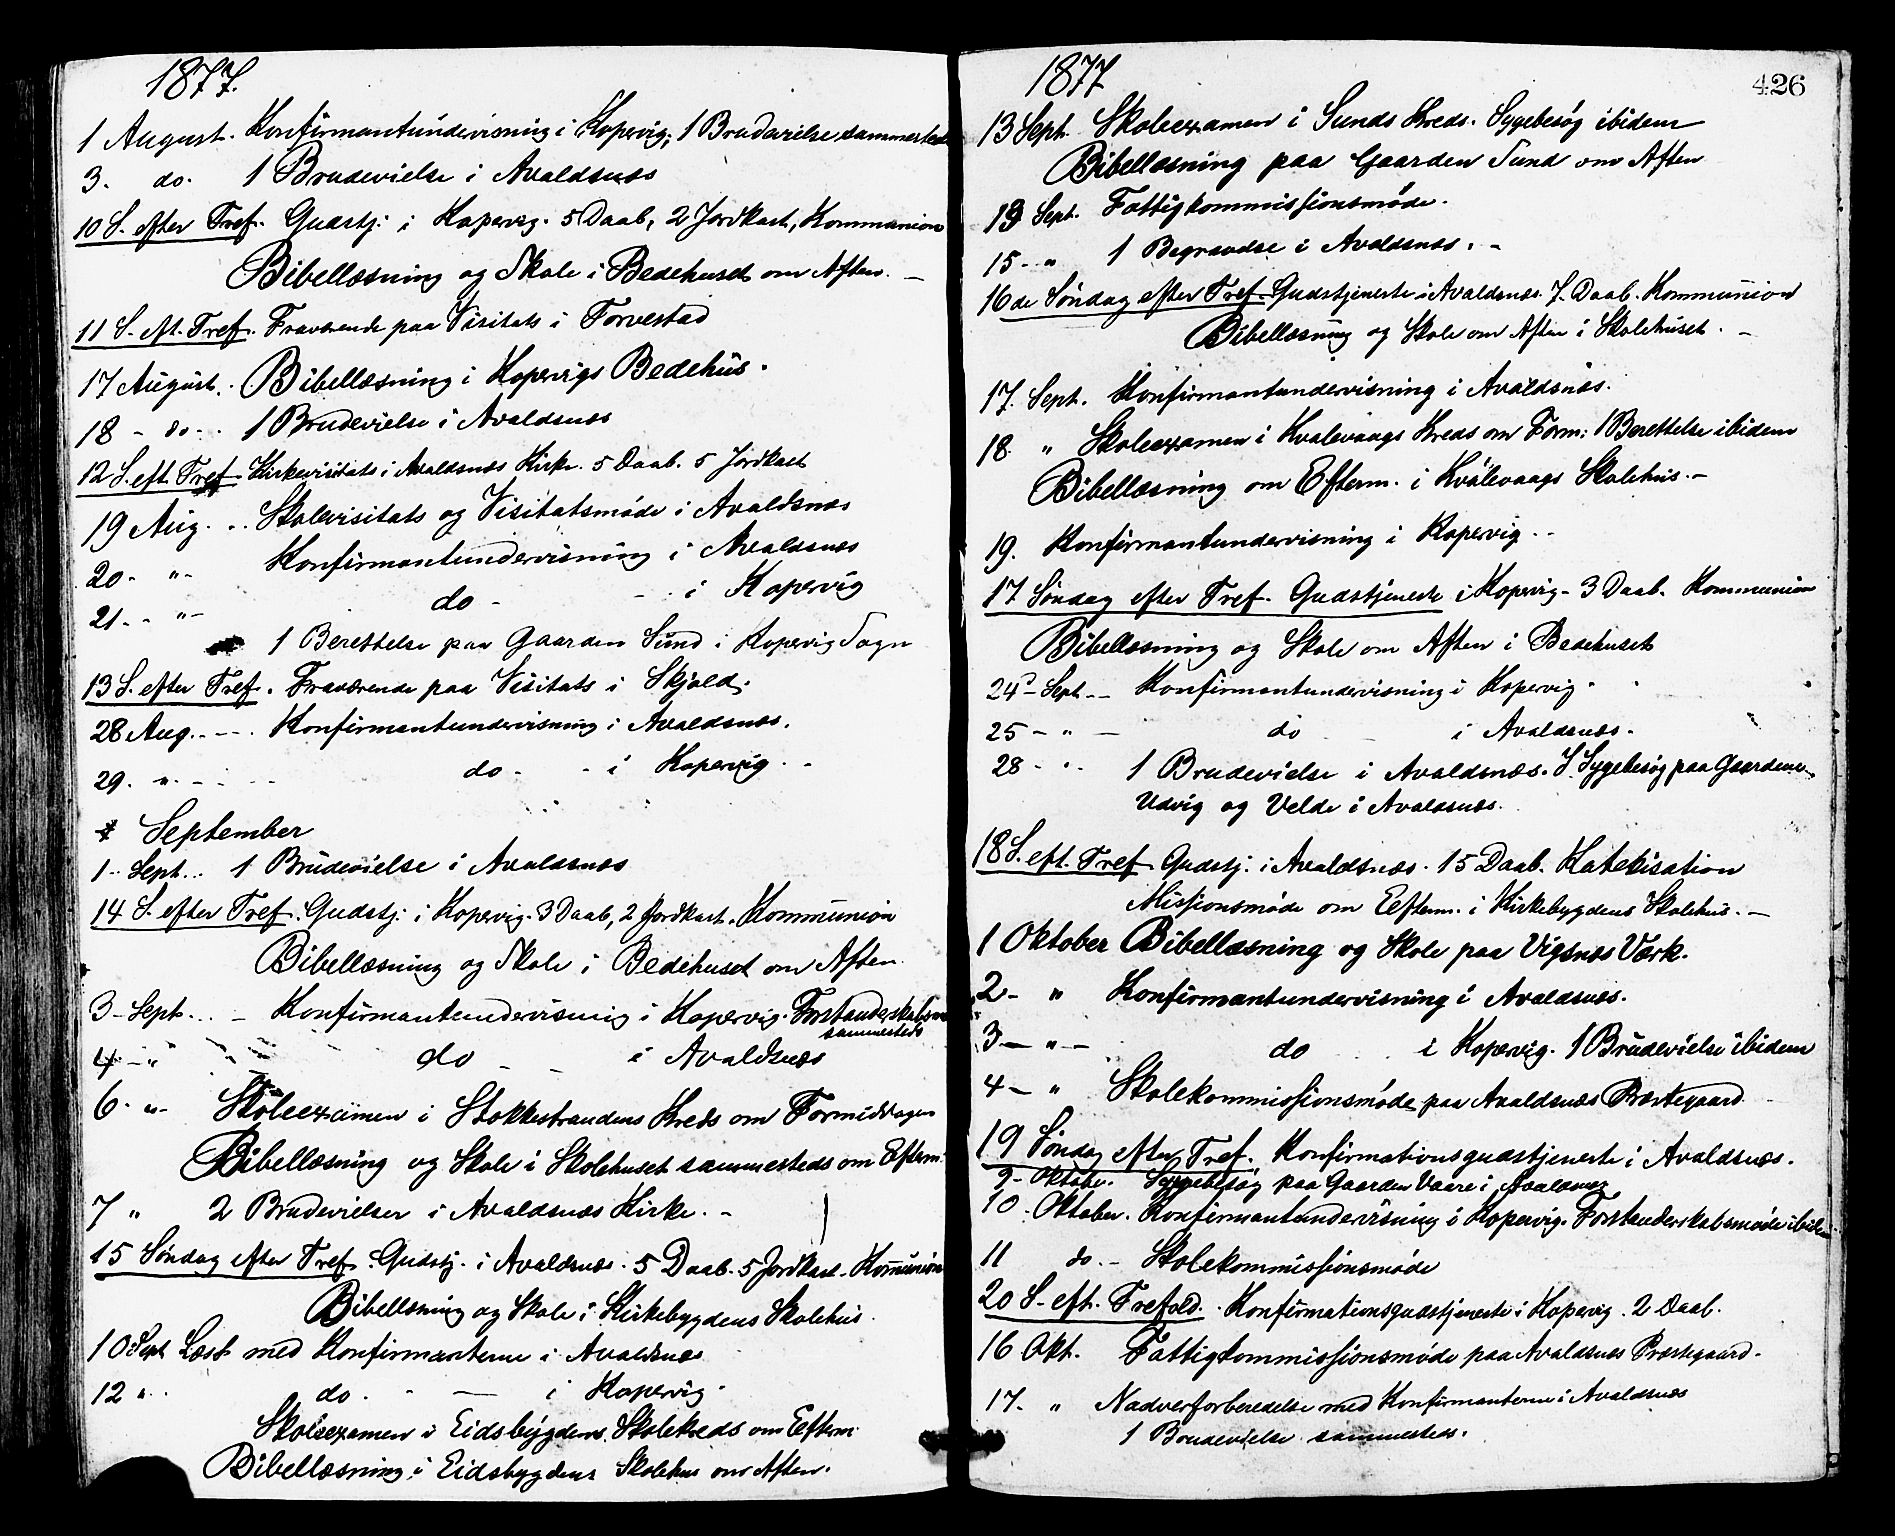 1877.
1 August. Konfirmantundervisning i Kopervig; 1 Brudevielse sammesteds
3. do. 1 Brudevielse i Avaldsnæs
10 S. efter Tref. Gudstj. i Kopervig. 5 Daab, 2 Jordkast, Kommunion
Bibellæsning og Skole i Bedehuset om Aften. –
11 S. eft. Tref. Fraværende paa Visitats i Torvestad
17 August. Bibellæsning i Kopervigs Bedehus.
18 - do - . 1 Brudevielse i Avaldsnæs
12 S. eft. Tref. Kirkevisitats i Avaldsnæs Kirke. 5 Daab. 5 Jordkast
19 Aug. .. Skolevisitats og Visitatsmøde i Avaldsnæs
20 - " - Konfirmantundervisning i Avaldsnæs
21 - . " - do - - i Kopervig
1 Berettelse paa Gaarden Sund i Kopervig Sogn
13 S. efter Tref. Fraværende paa Visitats i Skjold.
28 Aug. . - - . Konfirmantundervisning i Avaldsnæs.
29. " . - - do - - i Kopervig . .
September
1 - Sept. . . 1 Brudevielse i Avaldsnæs
14 S. efter Tref. Gudstj. i Kopervig. 3 Daab, 2 Jordkast. Kommunion
Bibellæsning og Skole i Bedehuset om Aften.
3 - Sept. . . - Konfirmantundervisning i Kopervig.
sammesteds
4 - " do - - i Avaldsnæs
6 - " - Skoleexamen i Stokkestrandens Kreds om Formiddagen
Bibellæsning og Skole i Skolehuset sammesteds om Efterm.
7 " 2 Brudevielser i Avaldsnæs Kirke. -
15 Søndag efter Tref. Gudstj. i Avaldsnæs. 5 Daab. 5 Jordkast. Kommunion
Bibellæsning og Skole i Kirkebygdens Skolehus.
10 Sept Læst med Konfirmanterne i Avaldsnæs
12 " . do. - — i Kopervig.
Skoleexamen i Eidsbygdens Skolekreds om Efterm
Bibellæsning i Eidsbygdens Skolehus om Aften.
1877
426
13 Sept. Skoleexamen i Sunds Kreds. Sygebesøg ibidem
Bibellæsning paa Gaarden Sund om Aften
13 Sept. Fattigkommissionsmøde.
15 - " 1 Begravelse i Avaldsnæs. -
16de Søndag efter Tref. Gudstjeneste i Avaldsnæs. 7 Daab. Kommunion
Bibellæsning og Skole om Aften i Skolehuset. -
17. Sept. Konfirmantundervisning i Avaldsnæs.
18. " Skoleexamen i Kvalevaags Kreds om Form: 1 Berettelse ibidem
Bibellæsning om Efterm. i Kvalevaags Skolehus. -
19. Konfirmantundervisning i Kopervig . .
17 Søndag efter Tref. Gudstjeneste i Kopervig - 3 Daab. Kommunion
Bibellæsning og Skole om Aften i Bedehuset
24 - Sept. - - Konfirmantundervisning i Kopervig .
25 - " - do i Avaldsnæs.
28 - " . 1 Brudevielse i Avaldsnæs. Sygebesøg paa Gaardene
Udvig og Velde i Avaldsnæs.
18 S. eft. Tref. Gudstj. i Avaldsnæs. 15 Daab. Katekisation
Missionsmøde om Efterm. i Kirkebygdens Skolehus. -
1 Oktober Bibellæsning og Skole paa Vigsnæs Værk.
2 - " Konfirmantundervisning i Avaldsnæs.
3 - " - do i Kopervig. 1 Brudevielse ibidem
4 - " Skolekommissionsmøde paa Avaldsnæs Præstegaard
19 Søndag efter Tref. Konfirmationsgudstjeneste i Avaldsnæs.
9 - Oktober. Sygebesøg paa Gaarden Vaare i Avaldsnæs
10 . Oktober. Konfirmantundervisning i Kopervig. Forstanderskabsmøde ibidem
11 do. - Skolekommissionsmøde
20 S. eft. Trefold. Konfirmationsgudstjeneste i Kopervig. 2 Daab.
16 Okt. Fattigkommissionsmøde paa Avaldsnæs Præstegaard.
17. " Nadverforberedelse med Konfirmanterne i Avaldsnæs
1 Brudevielse sammesteds.